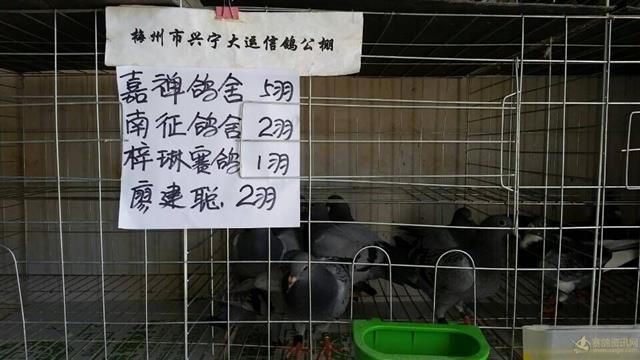 梅州市兴宁大运信鸽公棚
嘉禅鸽舍 5羽
南征鸽舍 2羽
梓琳襄鸽 1羽
廖建聪. 2羽
赛鸽资讯网